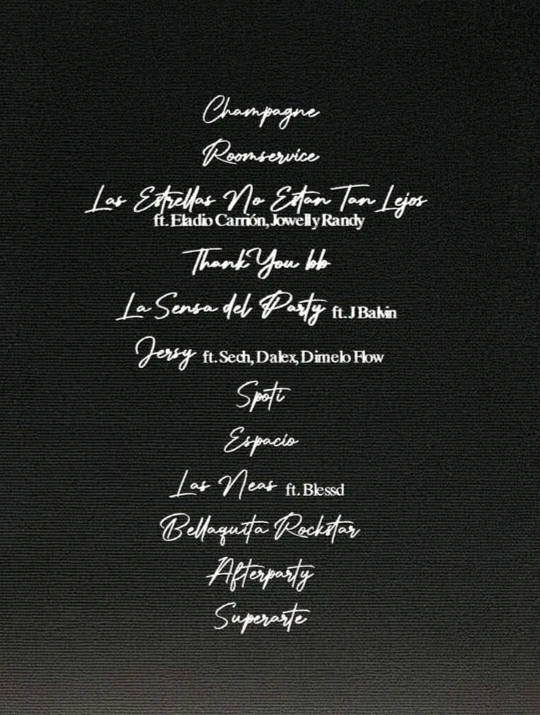 Champagne
Roomservice
Las Estrellas No Estan Tan Lejos
ft. Eladio Carrión, Jowell y Randy
Thank You bb
La Sensa del Party ft. J Balvin
Jersy ft. Sech, Dalex, Dimelo Flow
Spoti
Espacio
Las Neas ft. Blessd
Bellaquita Rockstar
Afterparty
Superarte